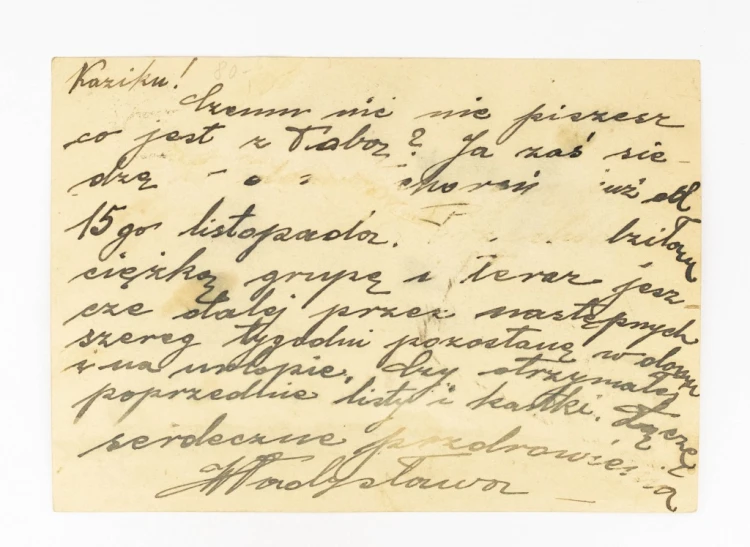 Kaziku!
Czemu nic nie piszesz
co jest z Tobą? Ja zaś sie-
dzę już od
15go listopada.
ciężką grypę i teraz jesz-
cze dalej przez następnych
szereg tygodni pozostanę w domu
na urlopie. Czy otrzymałeś
poprzednie listy i kartki. Łączę
serdeczne pozdrowienia
Władysława